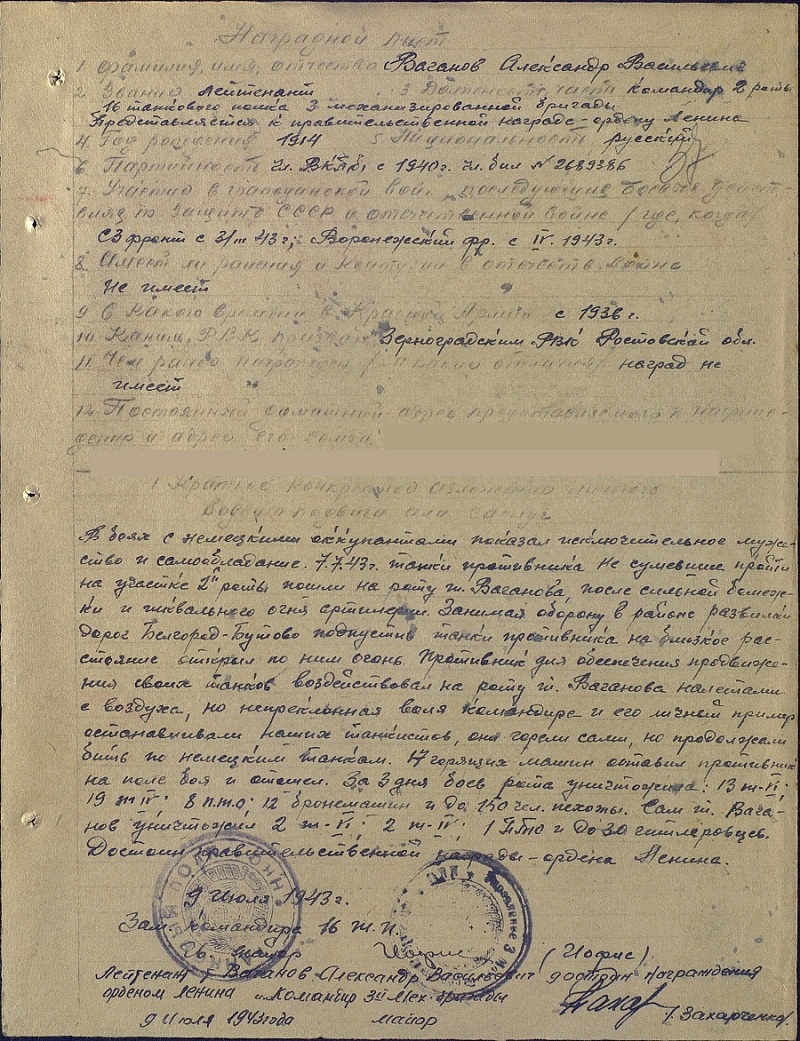 Наградной лист
1. Фамилия, имя, отчество Ваганов Александр Васильевич
2. Звание Лейтенант 3 Должность, часть Командир 2 роты
16 танкового полка 3 механизированной бригады
Представляется к правительственной награде - ордену Ленина
4. Год рождения 1914 5. Национальность русский
6. Партийность чл. ВКП(б) с 1940г. чл. бил N 2689386
7. Участие в гражданской вой. последующие боевых дейст-
виях по защите СССР и отечественной войне (где, когда)
СЗ фронт с 43г; Воронежский фр. с IV. 1943г.
8. Имеет ли ранения и контузии в отечеств. войне
Не имеет
9 С какого времени в Красной Армии с 1936г.
10. Каким РВК призван Зерноградским РВК Ростовской обл.
11. Чем ранее награжден наград не
имеет
12. Постоянный домашний адрес представляемого к награж-
дению и адрес его семьи:
1. Краткое конкретное изложение личного
боевого подвига или заслуг
В боях с немецкими оккупантами показал исключительное муже-
ство и самообладание. 7.7.43г. танки противника не сумевшие пройти
на участке 2й роты пошли на роту т. Ваганова, после сильной бомеж-
ки и шквального огня артилерии. Занимая оборону в районе развилки
дорог Белгород-Бутово подпустив танки противника на близкое рас-
стояние открыл по ним огонь. Противник для обеспечения продвиже-
ния своих танков воздействовал на роту т. Ваганова налетами
с воздуха, но непреклонная воля командира и его личный пример
останавливали наших танкистов, они горели сами, но продолжали
бить по немецким танкам. 17 горящих машин оставил противник
на поле боя и отошел. За 3 дня боев рота уничтожила: 13 т-VI;
19 т-IV; 8 п.т.о; 12 бронемашин и до 150 чел. пехоты. Сам т. Вага-
нов уничтожил 2 т-VI; 2 т-IV; 1 ПТО и до 30 гитлеровцев.
Достоин правительственной награды - ордена Ленина.
9 Июля 1943г.
Зам. командира 16 т.п.
Гв. майор (Иофис)
Лейтенант т. Ваганов Александр Васильевич достоин награждения
орденом Ленина Командир 3й Мех. бригады
9 Июля 1943 года майор /Захарченко/